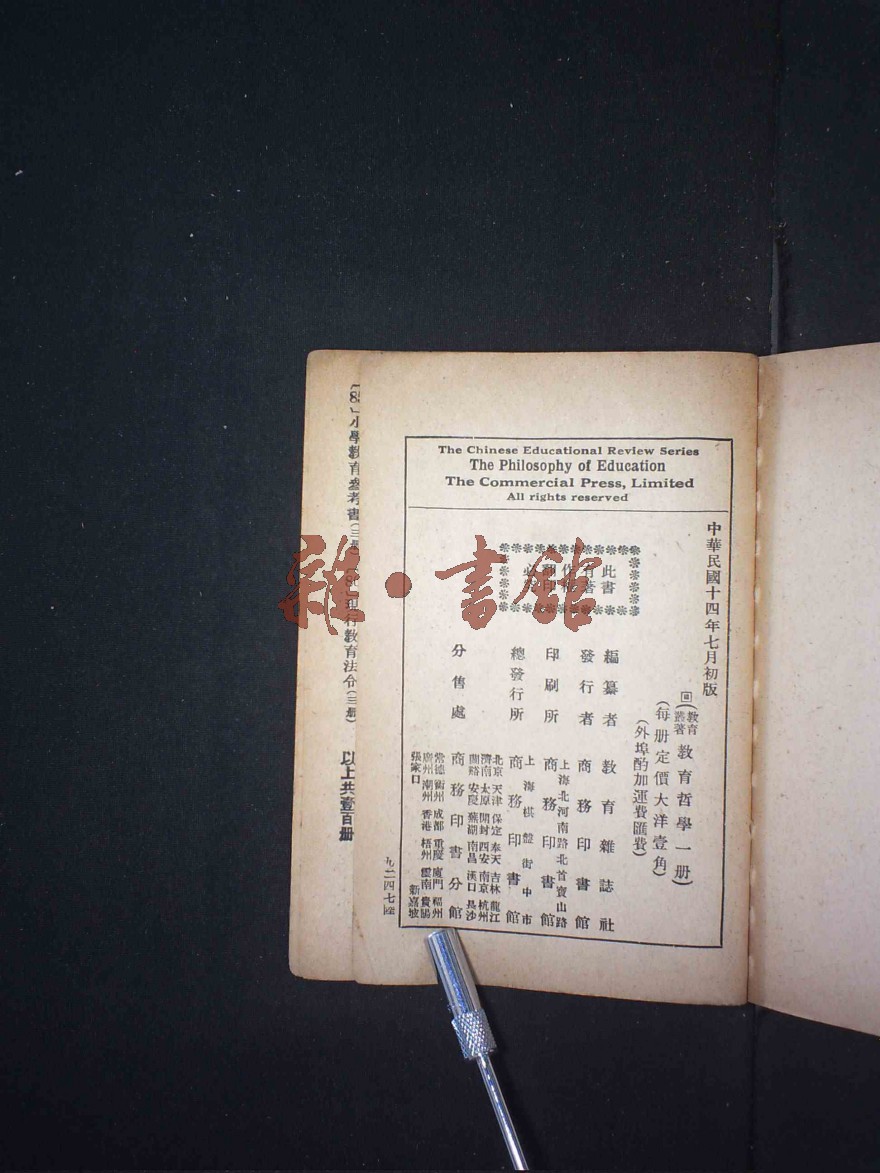 The Chinese Educational Review Series
The Philosophy of Education
The Commercial Press, Limited
All rights reserved
中華民國十四年七月初版
(教育叢著 教育哲學一册)
(每册定價大洋壹角)
(外埠酌加運費匯費)
此書
有著
作
印
必
編纂者 教育雜誌社
發行者 商務印書館
印刷所 上海北河南路北首寶山路 商務印書館
總發行所 上海棋盤街中市 商務印書館
分售處 商務印書分館
北京 天津 保定 奉天 吉林 龍江
濟南 太原 開封 西安 南京 杭州
蘭谿 安慶 蕪湖 南昌 漢口 長沙
常德 衡州 成都 重慶 廈門 福州
廣州 潮州 香港 梧州 雲南 貴陽
張家口 新嘉坡
九二四七
小學教育參考書(三册) 現行教育法令(三册) 以上共壹百册
雜·書館